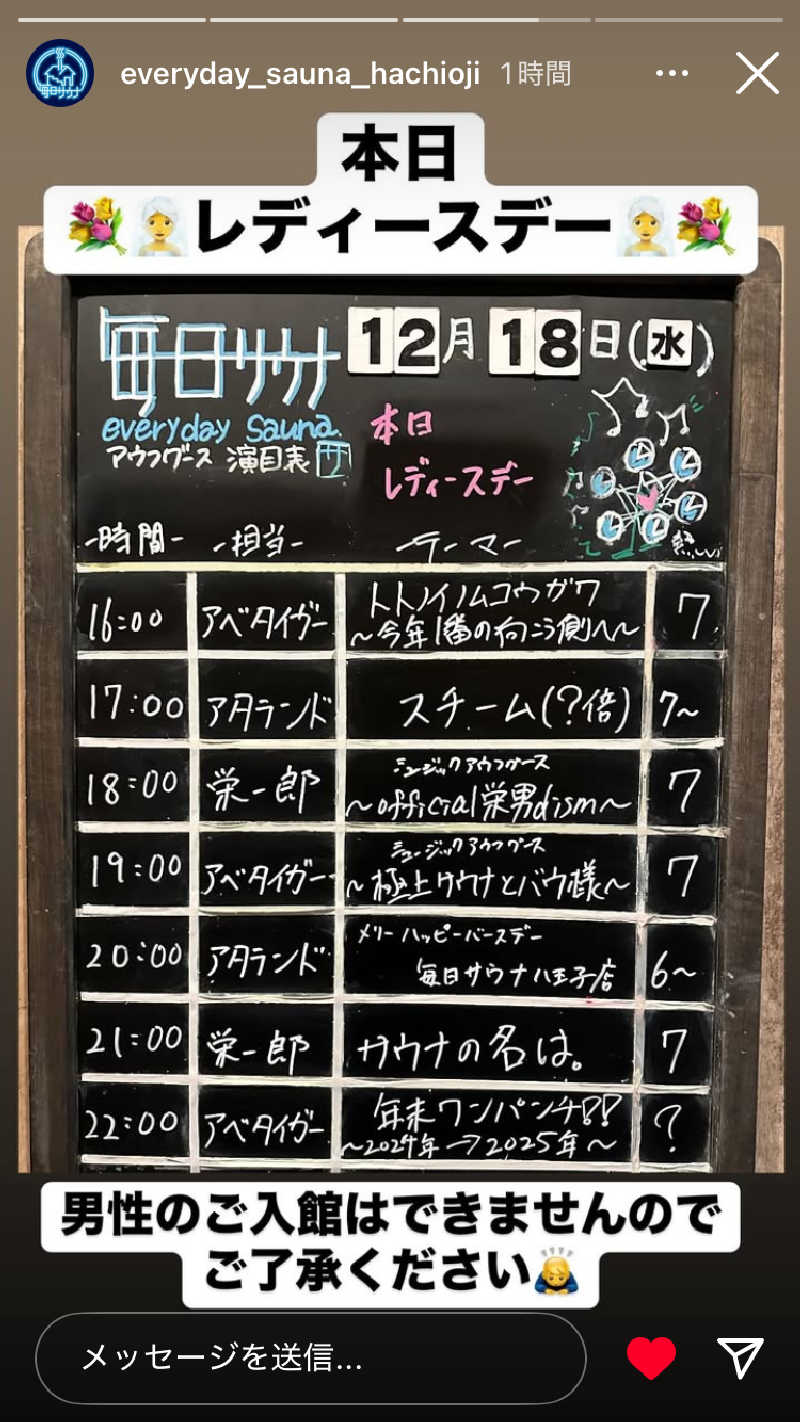 everyday_sauna_hachioji 1時間
本日
💐👰レディースデー👰💐
毎日サウナ 12月18日(水)
everyday Sauna.
アウフグース 演目表 サ
本日
レディースデー
-時間- -担当- -テーマー 熱い
16:00 アベタイガー トトノイノムコウガワ 7
〜今年1番の向こう側へ〜
17:00 アタランド スチーム(?倍) 7〜
18:00 栄一郎 ミュージックアウフグース 7
〜official栄男dism〜
19:00 アベタイガー ミュージックアウフグース 7
〜極上サウナとバウ様〜
20:00 アタランド メリーハッピーバースデー 6〜
毎日サウナ八王子店
21:00 栄一郎 サウナの名は。 7
22:00 アベタイガー 年末ワンパンチ!!! ?
〜2024年→2025年〜
男性のご入館はできませんので
ご了承ください🙇
メッセージを送信...